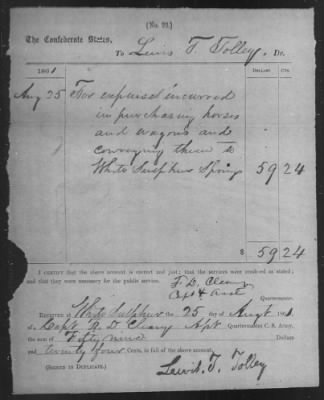 (No. 22.)
The Confederate States,
To Lewis T. Tolley, Dr.
1861
DOLLARS CTS.
Aug 25 For expenses incurred
in purchasing horses
and wagons and
conveying them to
White Sulphur Springs 59 24
$ 59 24
I CERTIFY that the above account is correct and just; that the services were rendered as stated;
and that they were necessary for the public service.
Capt &
Quartermaster.
RECEIVED at White Sulphur the 25 of Augt 1861,
Capt. R. D. Quartermaster C. S. Army,
the sum of Fifty nine Dollars
and twenty four Cents, in full of the above account.
(SIGNED IN DUPLICATE.) Lewis. T. Tolley